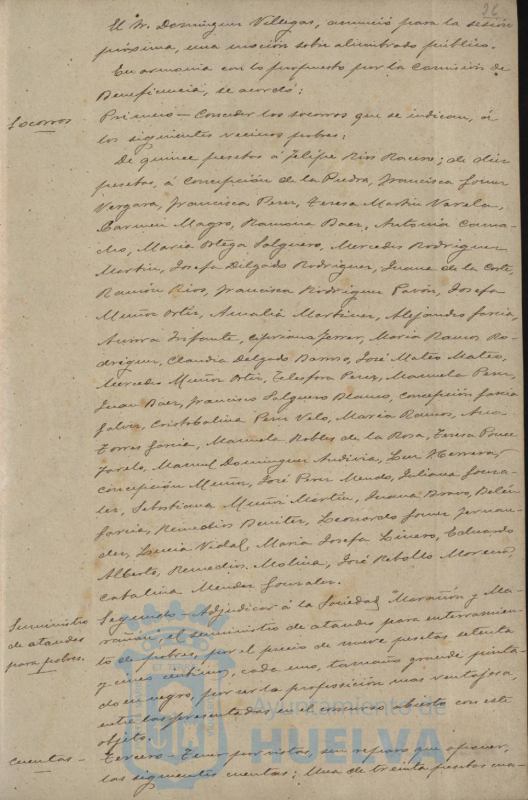 26.
El Sr. Domínguez Villegas, anunció para la sesión
próxima, una moción sobre alumbrado público.
En armonía con lo propuesto por la Comisión de
Beneficencia, se acordó:
Socorros Primero — Conceder los socorros que se indican, á
los siguientes vecinos pobres:
De quince pesetas á Felipe Rios Racero; de diez
pesetas, á Concepción de la Piedra, Francisca Gomez
Vergara, Francisca Perez, Teresa Martin Varela,
Carmen Magro, Ramona Baez, Antonia Cama-
cho, Maria Ortega Salguero, Mercedes Rodriguez
Martin, Josefa Delgado Rodriguez, Juana de la Corte,
Ramón Rios, Francisca Rodriguez Pavón, Josefa
Muñoz Ortiz, Amalia Martinez, Alejandro Garcia,
Aurora Infante, Cipriana Ferrer, Maria Ramos Ro-
driguez, Claudia Delgado Barroso, José Mateo Mateo,
Mercedes Muñoz Ortiz, Telesfora Perez, Manuela Perez,
Juan Baez, Francisco Salguero Blanco, Concepción Garcia
Galvez, Cristobalina Perez Velo, Maria Ramos, Ana
Torres Garcia, Manuela Robles de la Rosa, Teresa Ponce
Manuel Dominguez Andivia, Luz Herrera,
Concepción Muñoz, José Perez Mendo, Juliana Gonza-
lez, Sebastiana Muñiz Martin, Juana Bravo, Belén
Garcia, Remedios Beniter, Leonardo Gomez Fernan-
dez, Lucia Vidal, Maria Josefa Livero, Eduardo
Alberto, Remedios Molina, José Rebollo Moreno,
Catalina Mendez Gonzalez.
Suministro de ataudes para pobres. Segundo — Adjudicar á la Sociedad "Marañón y Ma-
rañón", el suministro de ataudes para enterramien-
to de pobres, por el precio de nueve pesetas setenta
y cinco centimos, cada uno, tamaño grande pinta-
do en negro, por ser la proposición mas ventajosa
entre las presentadas en el concurso abierto con este
objeto.
Cuentas — Tercero — Tener por vistas, sin reparo que oponer,
las siguientes cuentas: Una de treinta pesetas cua-
Ayuntamiento de
HUELVA